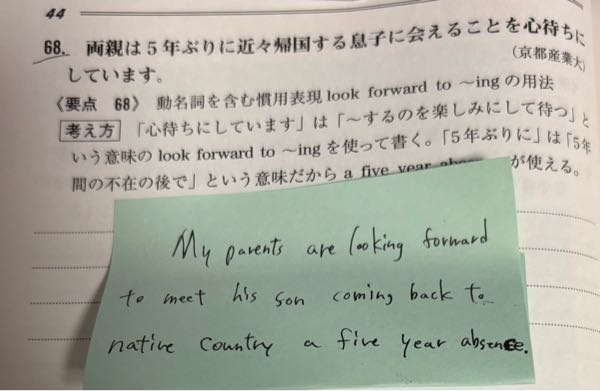 44
68. 両親は5年ぶりに近々帰国する息子に会えることを心待ちに
しています。
(京都産業大)
《要点 68》 動名詞を含む慣用表現 look forward to ~ing の用法
考え方 「心待ちにしています」は「～するのを楽しみにして待つ」と
いう意味の look forward to ~ing を使って書く。「5年ぶりに」は「5年
間の不在の後で」という意味だから a five year が使える。
My parents are looking forward
to meet his son coming back to
native country a five year absence.